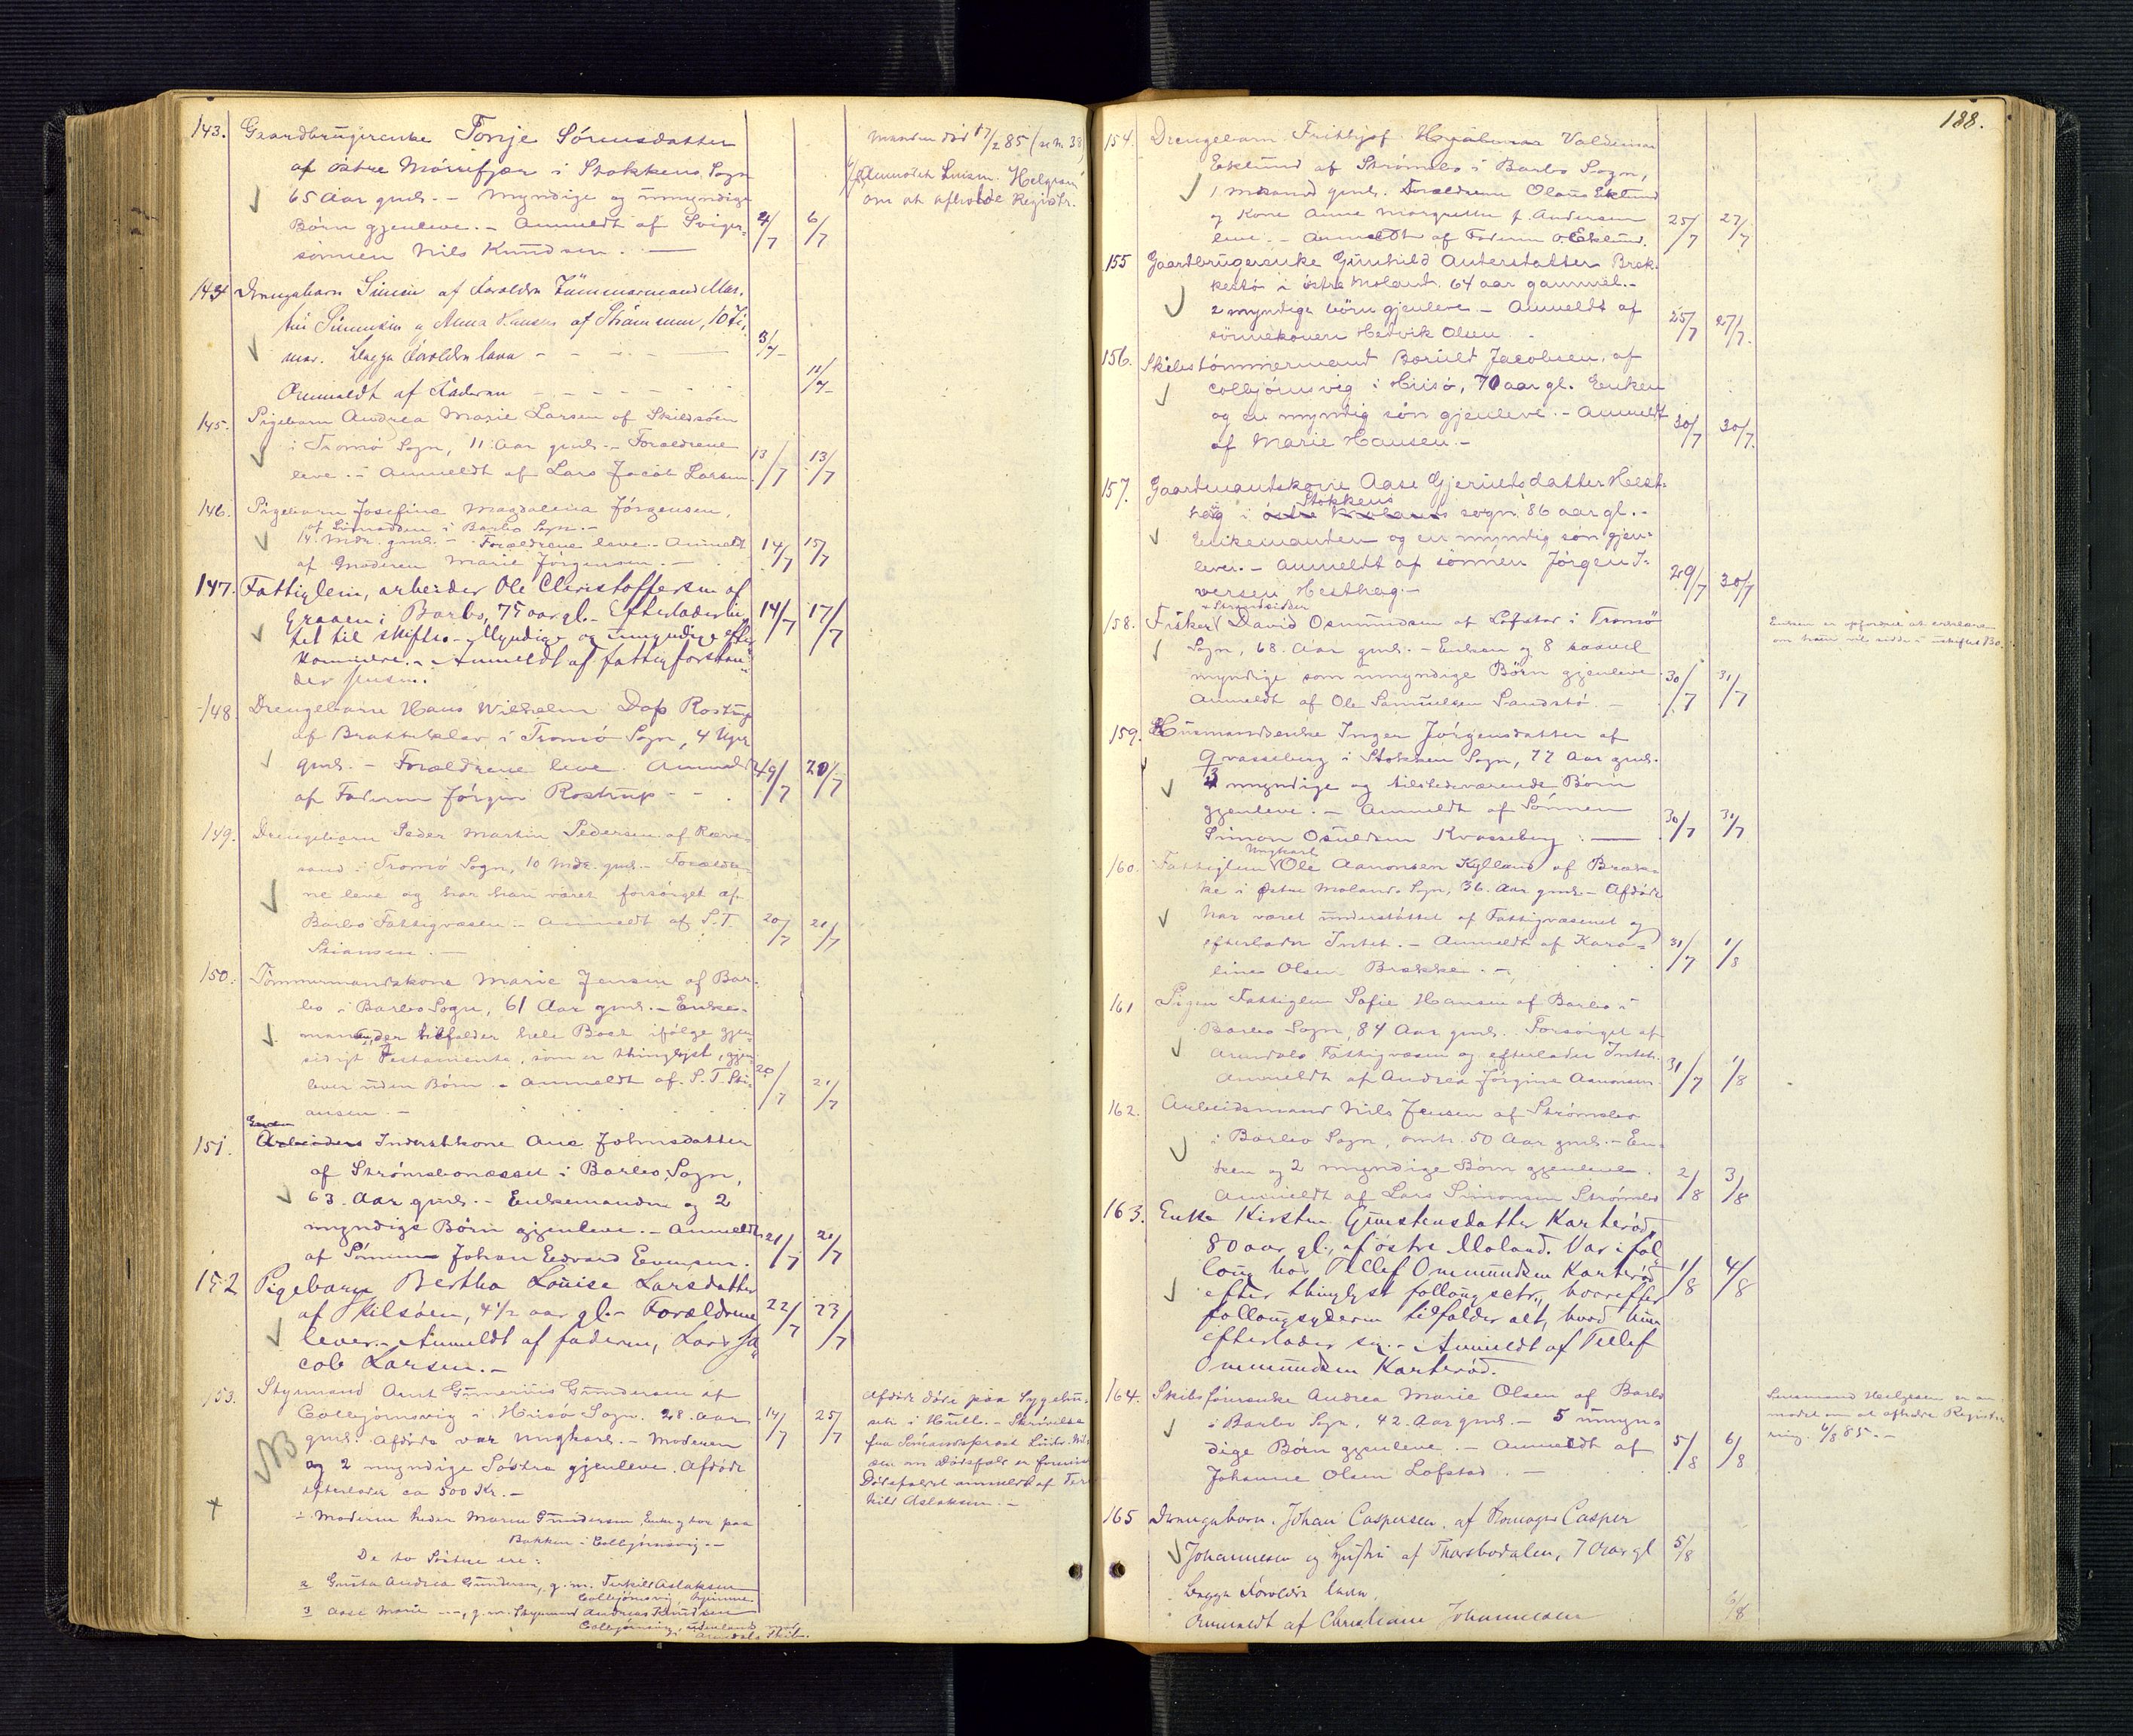 143. Gaardbrugerenke Tonje Sörensdatter
af östre Mörrefjær i Stokkens Sogn
65 Aar gml. - Myndige og umyndige
Börn gjenleve. - Anmeldt af Sviger-
sönnen Nils Knudsen. 4/7 6/7
Manden död 17/2 85 (se N. 38)
Anmodet Lensm. Helgesen
om at afholde Registr.
144 Drengebarn Simon af Forældre Tømmermand Mar-
tin Simonsen og Anna Hansen af Strømmen, 10 Ti-
mer. Begge Forældre leve 3/7
Anmeldt af Faderen 11/7
145. Pigebarn Andrea Marie Larsen af Skilsöen
i Tromö Sogn, 11 Aar gml. - Forældrene
leve. - Anmeldt af Lars Jacob Larsen. 13/7 13/7
146. Pigebarn Josefine Magdalena Jörgensen,
i Barbo Sogn. -
14 Mdr. gml. - Forældrene leve. - Anmeldt
af Moderen Marie Jörgensen. - 14/7 15/7
147. Fattiglem, arbeider Ole Christoffersen af
Graaen i Barbo, 75 aar gl. - Efterlader in-
tet til skifte. - Myndige og umyndige efter-
kommere. - Anmeldt af fattigforstan-
der 14/7 17/7
148. Drengebarn Hans Wilhelm Dop Rostrup
af Bratteklev i Tromö Sogn, 4 Uger
gml. - Forældrene leve. Anmeldt
af Faderen Jörgen Rostrup - - 19/7 20/7
149. Drengebarn Peder Martin Pedersen af Ræve-
sand i Tromö Sogn, 10 Mdr. gml. - Forældre-
ne leve og har han været forsörget af
Barbo Fattigvæsen. - Anmeldt af S. T.
Stiansen. - 20/7 21/7
150. Tömmermandskone Marie Jensen af Bar-
bo i Barbo Sogn, 61 Aar gml. - Enke-
manden, der tilfalder hele Boet ifölge gjen-
sidigt Testamente, som er thinglyst, gjen-
lever uden Börn. - Anmeldt af S. T. Sti-
ansen. - 20/7 21/7
151. Arbeiders Inderstkone Ane Johnsdatter
af Strömsbonæsset i Barbo Sogn,
63 Aar gml. - Enkemanden og 2
myndige Börn gjenleve. - Anmeldt
af Sönnen Johan Edvard Evensen. 21/7 21/7
152 Pigebarn Bertha Louise Larsdatter
af Skilsöen, 4 1/2 aar gl. - Forældrene
lever. - Anmeldt af faderen, Lars Ja-
cob Larsen. - 22/7 23/7
153. Styrmand Amt Gunerius Gundersen af
Colbjörnsvig i Hisö Sogn. 28 Aar
gml. Afdöde var Ungkarl. - Moderen
og 2 myndige Söstre gjenleve. Afdöde
efterlader ca 500 Kr. - 14/7 25/7
NB
Afdöde döde paa Sygehu-
set i Hull. - Skrivelse
fra Sömandsprest
om Dödsfald er
Dödsfaldet anmeldt af Ter-
kild Aslaksen. -
Moderen heder Maren Gundersen, Enke, bor paa
Bakken i Colbjörnsvig. -
De to Söstre ere:
2 Andrea Gundersen, g. m. Terkild Aslaksen
Colbjörnsvig, hjemme
3 Aase Marie - - -, g. m. Styrmand Andreas Knudsen
Colbjörnsvig, udenlands med
Arendals Skib.
188.
154. Drengebarn Frithjof Hjalmar Valdemar
Eklund af Strömsbo i Barbo Sogn,
1 Maaned gml. Forældrene Olaus Eklund
og Kone Anne Margrethe f. Andersen
leve. - Anmeldt af Faderen O. Eklund. 25/7 27/7
155 Gaardbrugerenke Gunhild Anterdatter Bræk-
kestö i östre Moland. 64 aar gammel. -
2 myndige börn gjenleve. - Anmeldt af
sönnekonen Hedvik Olsen. 25/7 27/7.
156. Skibstömmermand Boruld Jacobsen, af
Colbjörnsvig i Hisö, 70 aar gl. Enken
og en myndig sön gjenleve. - Anmeldt
af Marie Hansen. - 30/7 30/7.
157. Gaardmandskone Aase Gjeruldsdatter Hest-
hag i östre Molands Stokkens sogn 86 aar gl. -
Enkemanden og en myndig sön gjen-
lever. - Anmeldt af sönnen Jörgen I-
versen Hesthag. - 29/7 30/7
158. Fisker & Strandsidder David Osmundsen af Lofstad i Tromö
Sogn, 68 Aar gml. - Enken og 8 saavel
myndige som umyndige Börn gjenleve.
Anmeldt af Ole Samuelsen Sandstö. - 30/7 31/7
Enken er opfordret at erklære
om hun vil sidde i uskiftet Bo.
159. Husmandsenke Inger Jörgensdatter af
Qvasseberg i Stokken Sogn, 77 Aar gml.
3 myndige og tilstedeværende Börn
gjenleve. - Anmeldt af Sönnen
Simon Osuldsen Kvasseberg. 30/7 31/7
160. Fattiglem Ungkarl Ole Aanonsen Kylland af Bræk-
ke i Östre Molands Sogn, 36 Aar gml. - Afdöde
har været understöttet af Fattigvæsenet og
efterlader Intet. - Anmeldt af Karo-
line Olsen Brække. - 31/7 1/8
161 Pigen Fattiglem Sofie Hansen af Barbo i
Barbo Sogn, 84 Aar gml. Forsörget af
Arendals Fattigvæsen og efterlader Intet.
Anmeldt af Andrea Jörgine Aanonsen. 31/7 1/8
162. Arbeidsmand Nils Jensen af Strömsbo
i Barbo Sogn, omtr. 50 Aar gml. - En-
ken og 2 myndige Börn gjenleve.
Anmeldt af Lars Simonsen Strömsbo 2/8 3/8
163. Enke Kirsten Gunstensdatter Karteröd,
80 aar gl., af östre Moland. Var i fol-
loug hos Tellef Ommundsen Karteröd
efter thinglyst follougsctr., hvorefter
follougsyderen tilfalder alt, hvad hun
efterlader sig. - Anmeldt af Tellef
Ommundsen Karteröd. 1/8 4/8
164. Skibsförerenke Andrea Marie Olsen af Barbo
i Barbo Sogn, 42 Aar gml. - 5 umyn-
dige Börn gjenleve. - Anmeldt af
Johanne Olsen Lofstad. - 5/8 6/8
Lensmand Helgesen er an-
modet om at afholde Registre-
ring. 6/8 85. -
165 Drengebarn Johan Caspersen, af Casper
Johannesen og Hustru af Thorsbodalen, 7 Aar gl 5/8
Begge Forældre leve.
Anmeldt af Christiane Johannesen 6/8